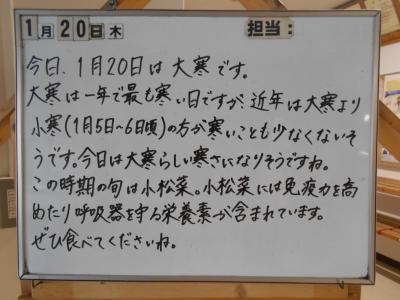 1月20日木 担当：
今日、1月20日は大寒です。
大寒は一年で最も寒い日ですが、近年は大寒より
小寒(1月5日～6日頃)の方が寒いことも少なくないそ
うです。今日は大寒らしい寒さになりそうですね。
この時期の旬は小松菜。小松菜には免疫力を高
めたり呼吸器を守る栄養素が含まれています。
ぜひ食べてくださいね。